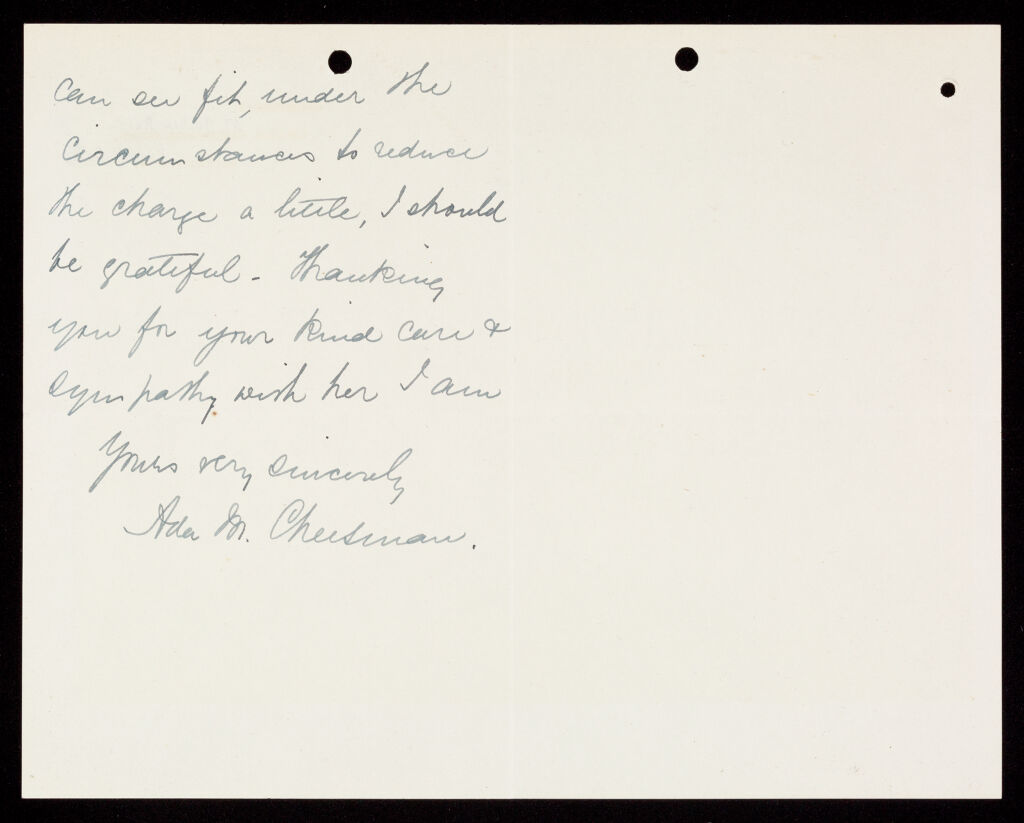 can see fit, under the
circumstances to reduce
the charge a little, I should
be grateful - Thanking
you for your kind care &
sympathy with her I am
Yours very sincerely
Ada M. Cheesman.